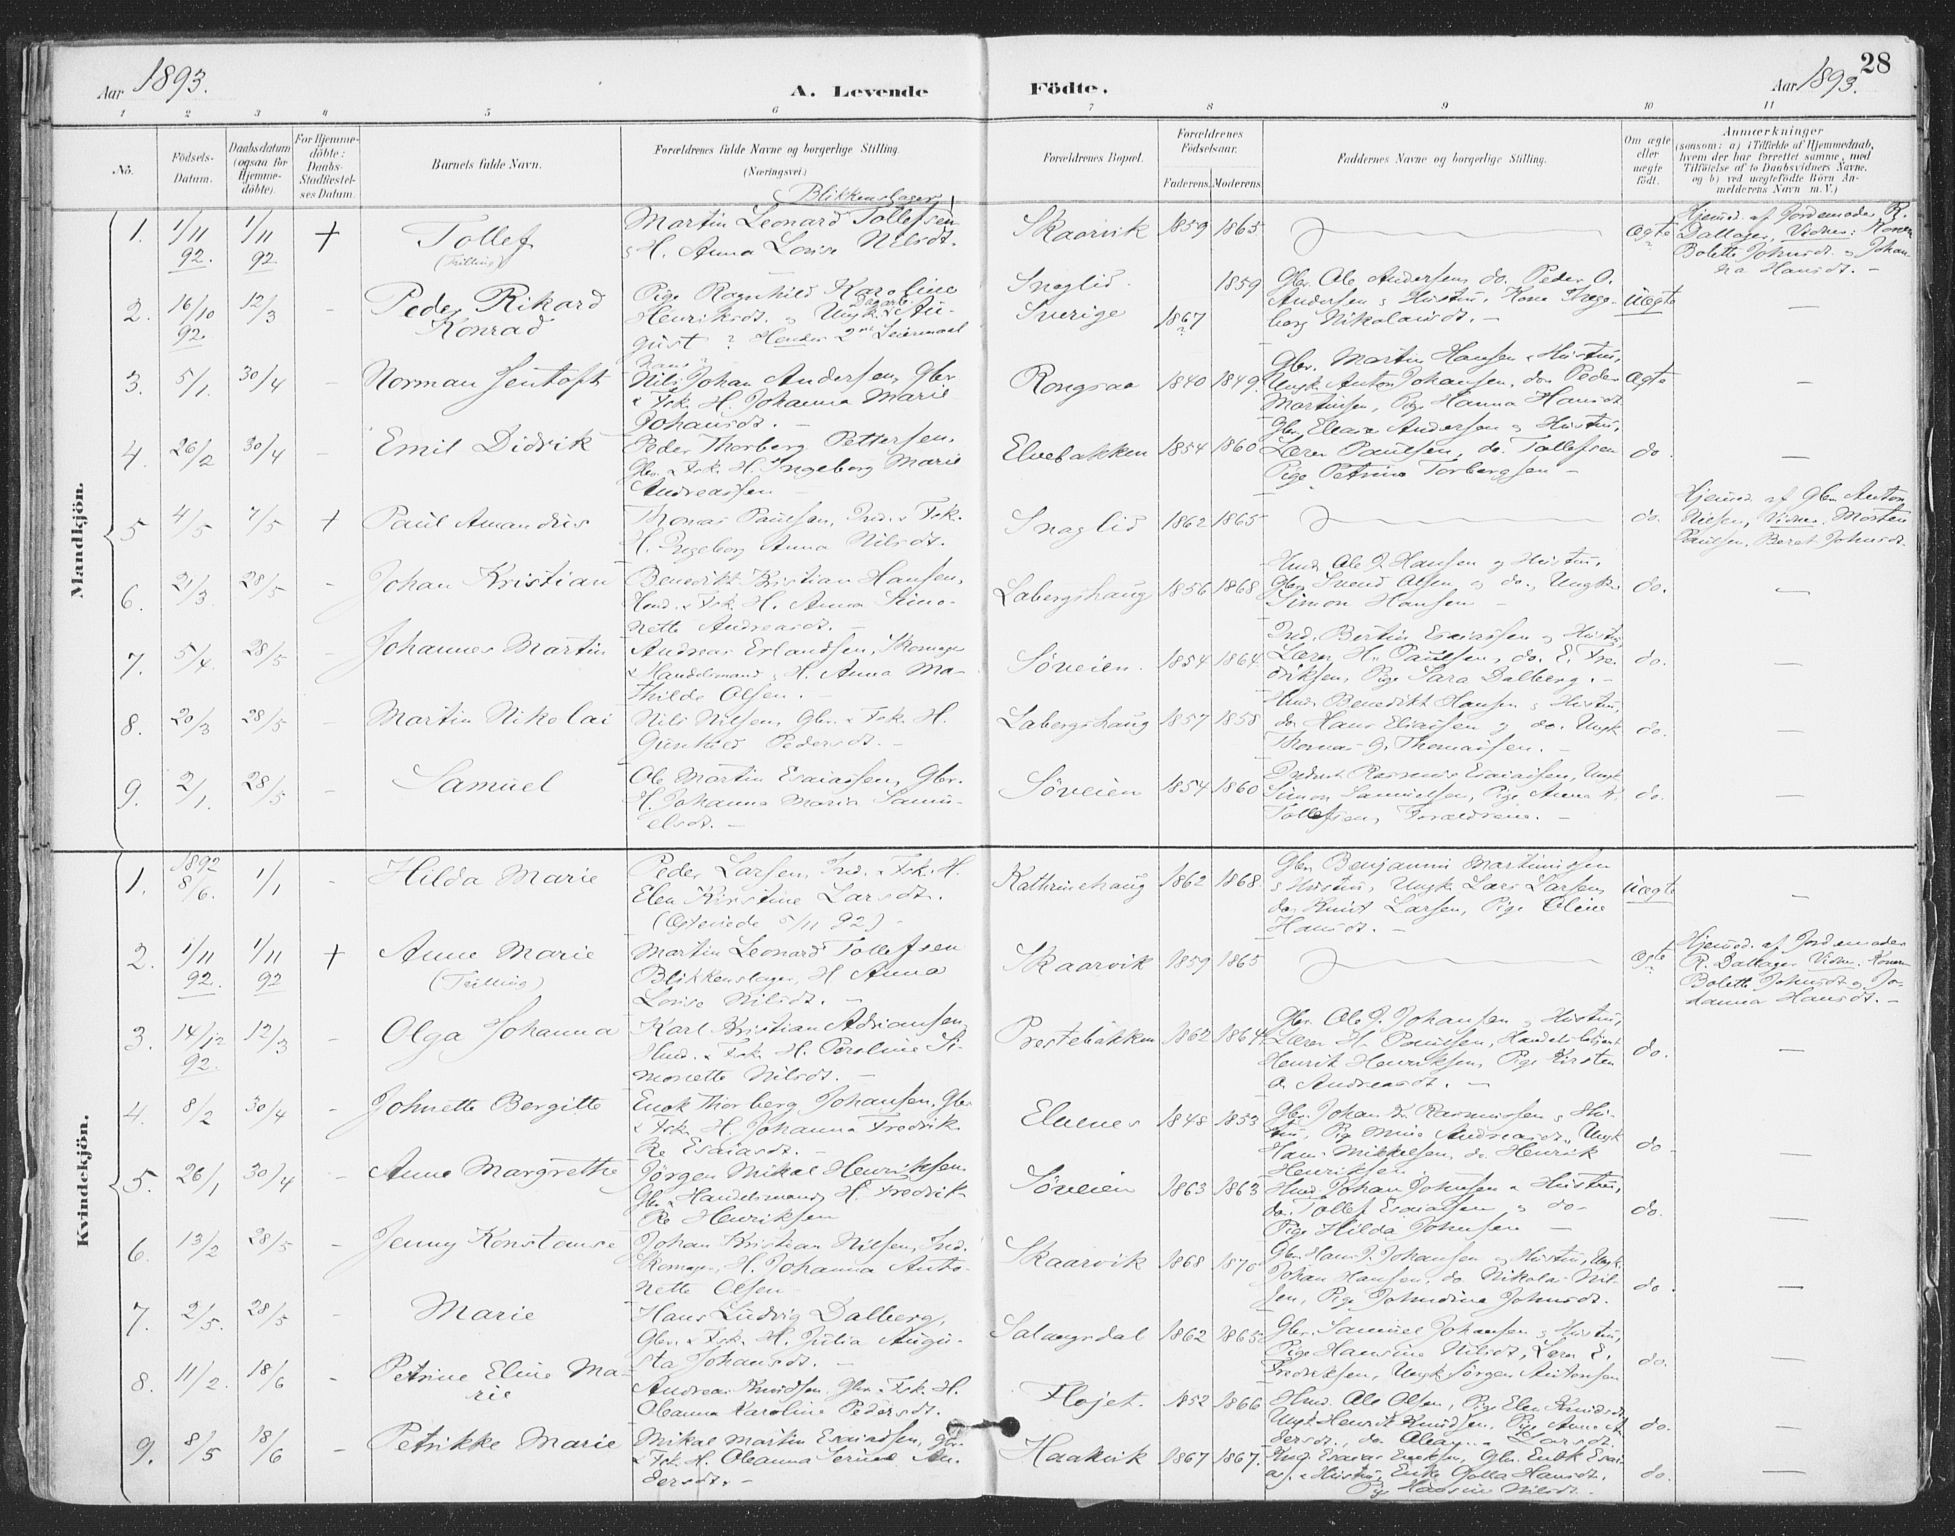 28
Aar 1893.
A. Levende Födte.
Aar 1893.
1 2 3 4 5 6 7 8 9 10 11
No.
Födsels-Datum.
Daabsdatum (ogsaa for Hjemme-döbte).
For Hjemme-döbte: Daabs-Stadfæstel-ses Datum.
Barnets fulde Navn.
Forældrenes fulde Navne og borgerlige Stilling.
(Næringsvei)
Forældrenes Bopæl.
Forældrenes Födselsaar.
Faderens. Moderens.
Faddernes Navne og borgerlige Stilling.
Om ægte eller uægte födt.
Anmærkninger
(saasom: a) i Tilfælde af Hjemmedaab,
hvem der har forrettet samme, med
Tilföielse af to Daabsvidners Navne,
og b) ved uægtefödte Börn An-
melderens Navn m. V.)
Mandkjön.
Blikkenslager
1. 1/11 92. 1/11 92 + Tollef (Trilling) Martin Leonard Tollefsen
& H. Anna Lovise Nilsdt. Skaarvik 1859 1865 Ægte
Hjemmd. af Jordemoder R.
Dallager, Vidner: Konen
Bolette Johnsdt. & Johan-
na Hansdt. –
2. 16/10 92. 12/3 - Peder Rikard Konrad
Pige Ragnhild Karoline
Henriksdt. Ungk. Dagarb. Au-
gust ? Hendes 2det Leiermaal
Snaglid. 1859
Sverige 1867 ?
Gbr. Ole Andersen, do. Peder O.
Andersen & Hustru, Kone Inge-
borg Nikolaisdt. –
Uægte –
3. 5/1 30/4 - Norman Jentoft
Nils Johan Andersen, Gbr
& Fsk. H. Johanna Marie
Johansdt. –
1840 1849.
Gbr. Martin Hansen & Hustru,
Ungk. Anton Johansen, do. Peder
Martinsen, Pige Hanna Hansdt
Ægte –
4. 26/2 30/4 - Emil Didrik
Peder Thorberg Pettersen,
Gbr. & Fsk. H. Ingeborg Marie
Andreassen –
Elvebakken 1854 1860
Gbr. Andersen & Hustru,
Lærer Paulsen, do. Tollefsen
Pige Petrine Torbergsen –
do. –
5 4/5 7/5 + Paul Amandus
Thomas Paulsen, Ind. & Fsk.
H. Ingeborg Anna Nilsdt.
Snaglid 1862 1865 do.
Hjemmd. af Gbr. Anton
Nielsen, Vidner Morten
Paulsen, Beret Johnsdt.
6. 21/3 28/5 - Johan Kristian
Benedikt Kristian Hansen,
Hmd. & Fsk. H. Anna Simo-
nette Andreasdt. –
Labergshaug 1856 1868
Hmd. Ole J. Hansen & Hustru,
Gbr. Svend Olsen & do., Ungk.
Simon Hansen –
do. –
7. 5/4. 28/5 - Johannes Martin
Andreas Erlandsen, Skomager
& Handelsmand & H. Anna Ma-
thilde Olsen. –
Søveien. 1854 1864
Ind. Bertin Esaiassen & Hustru
Lærer H. Paulsen, do. E. Fre-
driksen, Pige Sara Dalberg. –
do. –
8. 20/3 28/5 - Martin Nikolai
Nils Nilsen, Gbr. & Fsk. H.
Gunhild Pedersdt. –
Labergshaug 1857 1858
Hmd. Benedikt Hansen & Hustru,
do. Hans Eliassen & do. Ungk
Thomas G. Thomassen. –
do. –
9. 2/1. 28/5 - Samuel
Ole Martin Esaiassen, Gbr.
H. Johanna Maria Samu-
elsdt. –
Søveien 1854 1860
Rasmus Esaiassen, Ungk
Simon Samuelsen, Pige Anna
Tollefsen, Forældrene. –
do. –
Kvindekjön.
1. 1892 8/6. 1/1 - Hilda Marie
Peder Larsen, Ind. & Fsk. H.
Elen Kirstine Larsdt.
(Ægteviede 5/11 92) –
Kathrinehaug 1862 1868
Gbr. Benjamin Martinussen
& Hustru, Ungk. Lars Larsen,
do. Knut Larsen, Pige Oline
Hansdt. –
Uægte –
2. 1/11 92. 1/11 92 + Anne Marie (Trilling)
Martin Leonard Tollefsen
Blikkenslager, H. Anna
Lovise Nilsdt. –
Skaarvik 1859 1865 Ægte
Hjemmd. af Jordemoder
R. Dallager Vidner: Konen
Bolette Johnsdt. & Jo-
hanna Hansdt. –
3. 14/12 92. 12/3 - Olga Johanna
Karl Kristian Adriansen,
Hmd. & Fsk. H. Paroline Si-
monette Nilsdt. –
Prestebakken 1862 1864
Gbr. Ole J. Johansen & Hustru,
Lærer H. Paulsen, Handelsbetjent
Henrik Henriksen, Pige Kirsten
A. Andreasdt. –
do. –
4. 8/2 30/4 - Johnette Bergitte
Enok Thorberg Johansen, Gbr
& Fsk. H. Johanna Fredrik-
ke Esaiasdt. –
Elvenes 1848 1853
Gbr. Johan Rasmussen & Hu-
stru, Pige Andreasdt., Ungk
Hans Mikkelsen, do. Henrik
Henriksen
do. –
5. 26/1 30/4 - Anne Margrethe
Jørgen Mikal Henriksen
Gbr & Handelsmand, H. Fredrik-
ke Henriksen
Søveien 1863 1863
Hmd. Johan Johnsen & Hustru,
do. Tollef Esaiassen & do.
Pige Hilda Johnsen –
do. –
6. 13/2 28/5 - Jenny Konstanse
Johan Kristian Nilsen, Ind.
Skomager, H. Johanna Anto-
nette Olsen –
Skaarvik 1868 1870
Gbr. Hans J. Johansen & Hustru, Ungk.
Johan Hansen, do Nikolai Nil-
sen, Pige Johnsdt.
do. –
7. 2/5. 28/5 - Marie
Hans Ludvig Dalberg,
Gbr. & Fsk. H. Julia Augu-
sta Johansdt. –
Salangsdal 1862 1865
Gbr. Samuel Johansen & Hustru,
Pige Hansine Nilsdt, Lærer E.
Fredriksen, Ungk Jørgen Antonsen
do. –
8. 11/2. 18/6 - Petrine Eline Ma-
rie
Andreas Knudsen Gbr. & Fsk. H.
Oleanna Karoline Pedersdt.
Fløjet. 1852 1866
Hmd. Ole Olsen, Pige Elen Knudsdt
Ungk Henrik Knudsen, Pige Anne
dersdt., do. Larsdt.
do. –
9. 8/5 18/6 - Petrikke Marie
Mikal Martin Esaiassen, Gbr.
& Fsk. H. Oleanna An-
dersdt. –
Haakvik 1867 1867.
Esaias Enoksen, Gbr. Enok Esai-
as. & Hustru, Enke Hansdt.
Pige Hansine Nilsdt. –
do. –